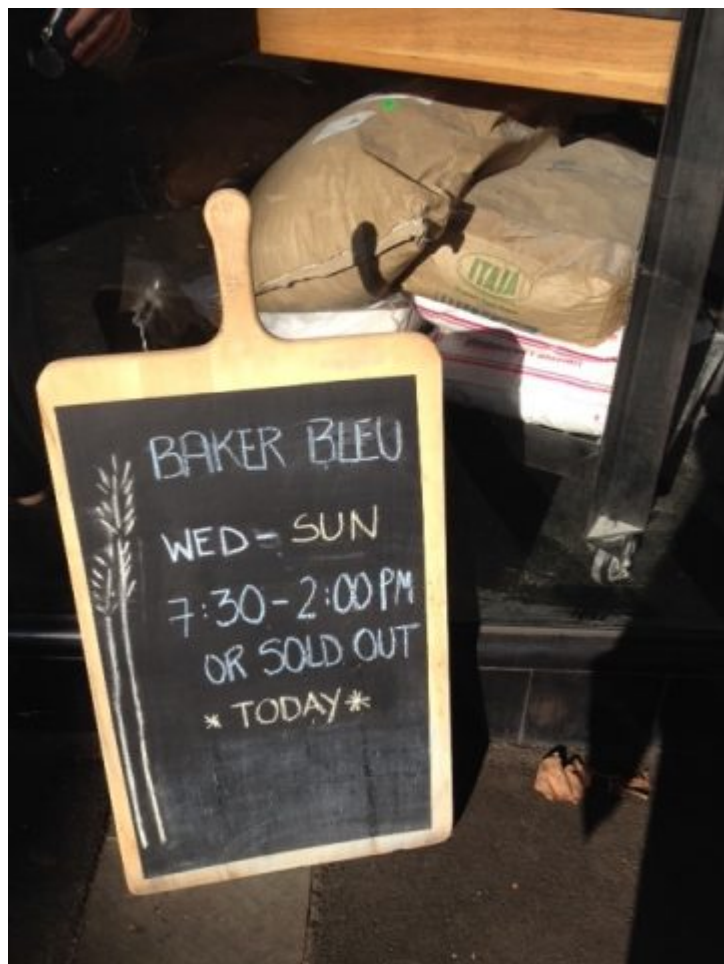 BAKER BLEU
WED - SUN
7:30 - 2:00 PM
OR SOLD OUT
* TODAY *